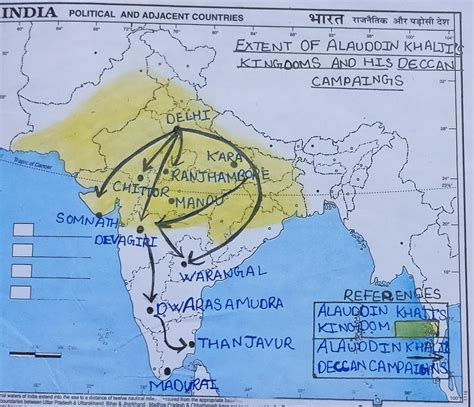 INDIA POLITICAL AND ADJACENT COUNTRIES
भारत राजनैतिक और पड़ोसी देश
EXTENT OF ALAUDDIN KHALJI'S
KINGDOMS AND HIS DECCAN
CAMPAINGS
DELHI
KARA
RANTHAMBORE
CHITTOR
MANDU
Tropic of Cancer
SOMNATH
DEVAGIRI
WARANGAL
DWARASAMUDRA
THANJAVUR
MADURAI
REFERENCES
ALAUDDIN KHALJI'S
KINGDOM
ALAUDDIN KHALJI
DECCAN CAMPAIGNS